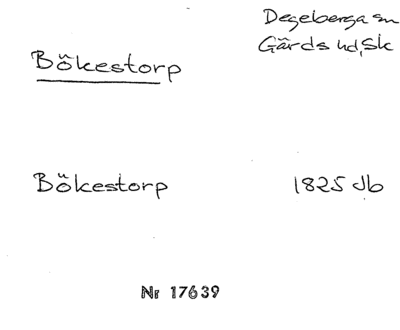 Degeberga sn
Gärds hd, Sk
Bökestorp
Bökestorp 1825 Jb
Nr 17639